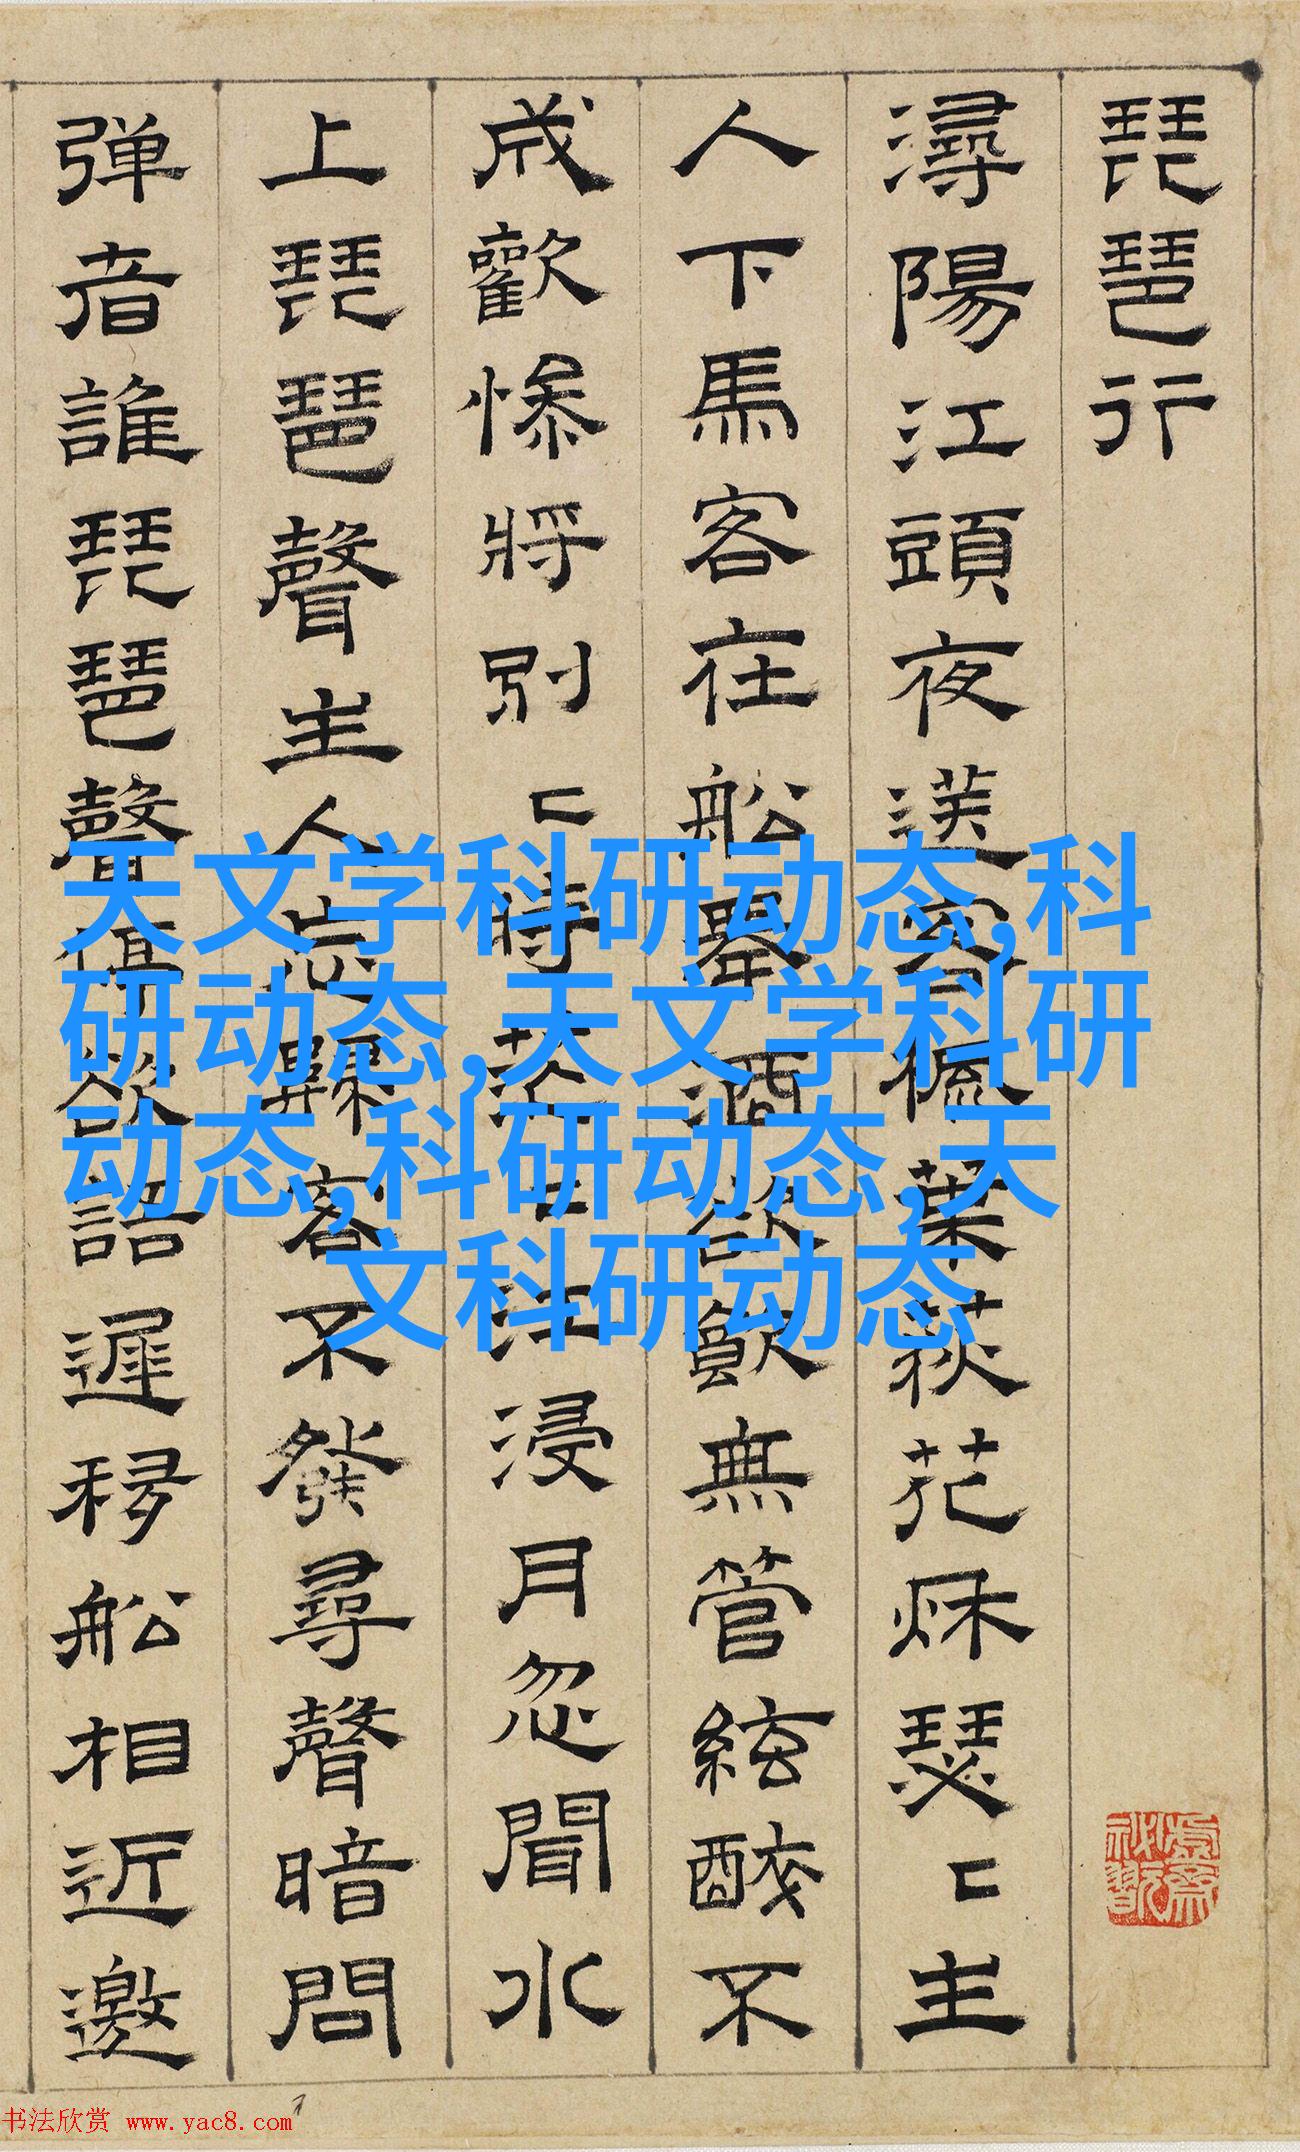 琵琶行
潯陽江頭夜送客楓葉荻花秌瑟〻主
人下馬客在船舉酒欲飲無管絃醉不
成歡慘將別〻時茫〻江浸月忽聞水
上琵琶聲主人忘歸客不發尋聲暗問
弹者誰琵琶聲停欲語遲移船相近邀
天文学科研动态,科
研动态,天文学科研
动态,科研动态,天
文科研动态
书法欣赏 www.yac8.com